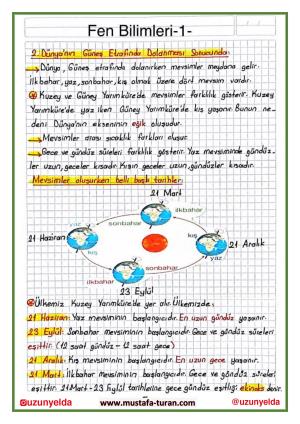 Fen Bilimleri-1-
2. Dünya'nın Güneş Etrafında Dolanması Sonucunda:
→Dünya, Güneş etrafında dolanırken mevsimler meydana gelir.
İlkbahar, yaz, sonbahar, kış olmak üzere dört mevsim vardır.
Kuzey ve Güney Yarımküre'de mevsimler farklılık gösterir. Kuzey
Yarımküre'de yaz iken Güney Yarımküre'de kış yaşanır. Bunun ne-
deni Dünya'nın ekseninin eğik oluşudur.
→Mevsimler arası sıcaklık farkları oluşur.
→Gece ve gündüz süreleri farklılık gösterir. Yaz mevsiminde gündüz-
ler uzun, geceler kısadır. Kışın geceler uzun, gündüzler kısadır.
Mevsimler oluşurken belli başlı tarihler;
21 Mart
ilkbahar
sonbahar
21 Haziran
yaz
kış
kış
yaz
21 Aralık
sonbahar
ilkbahar
23 Eylül
Ülkemiz Kuzey Yarımküre'de yer alır. Ülkemizde;
21 Haziran: Yaz mevsiminin başlangıcıdır. En uzun gündüz yaşanır.
23 Eylül: Sonbahar mevsiminin başlangıcıdır. Gece ve gündüz süreleri
eşittir. (12 saat gündüz - 12 saat gece)
21 Aralık: Kış mevsiminin başlangıcıdır. En uzun gece yaşanır.
21 Mart: İlkbahar mevsiminin başlangıcıdır. Gece ve gündüz süreleri
eşittir. 21 Mart - 23 Eylül tarihlerine gece gündüz eşitliği ekinoks denir.
@uzunyelda
www.mustafa-turan.com
@uzunyelda